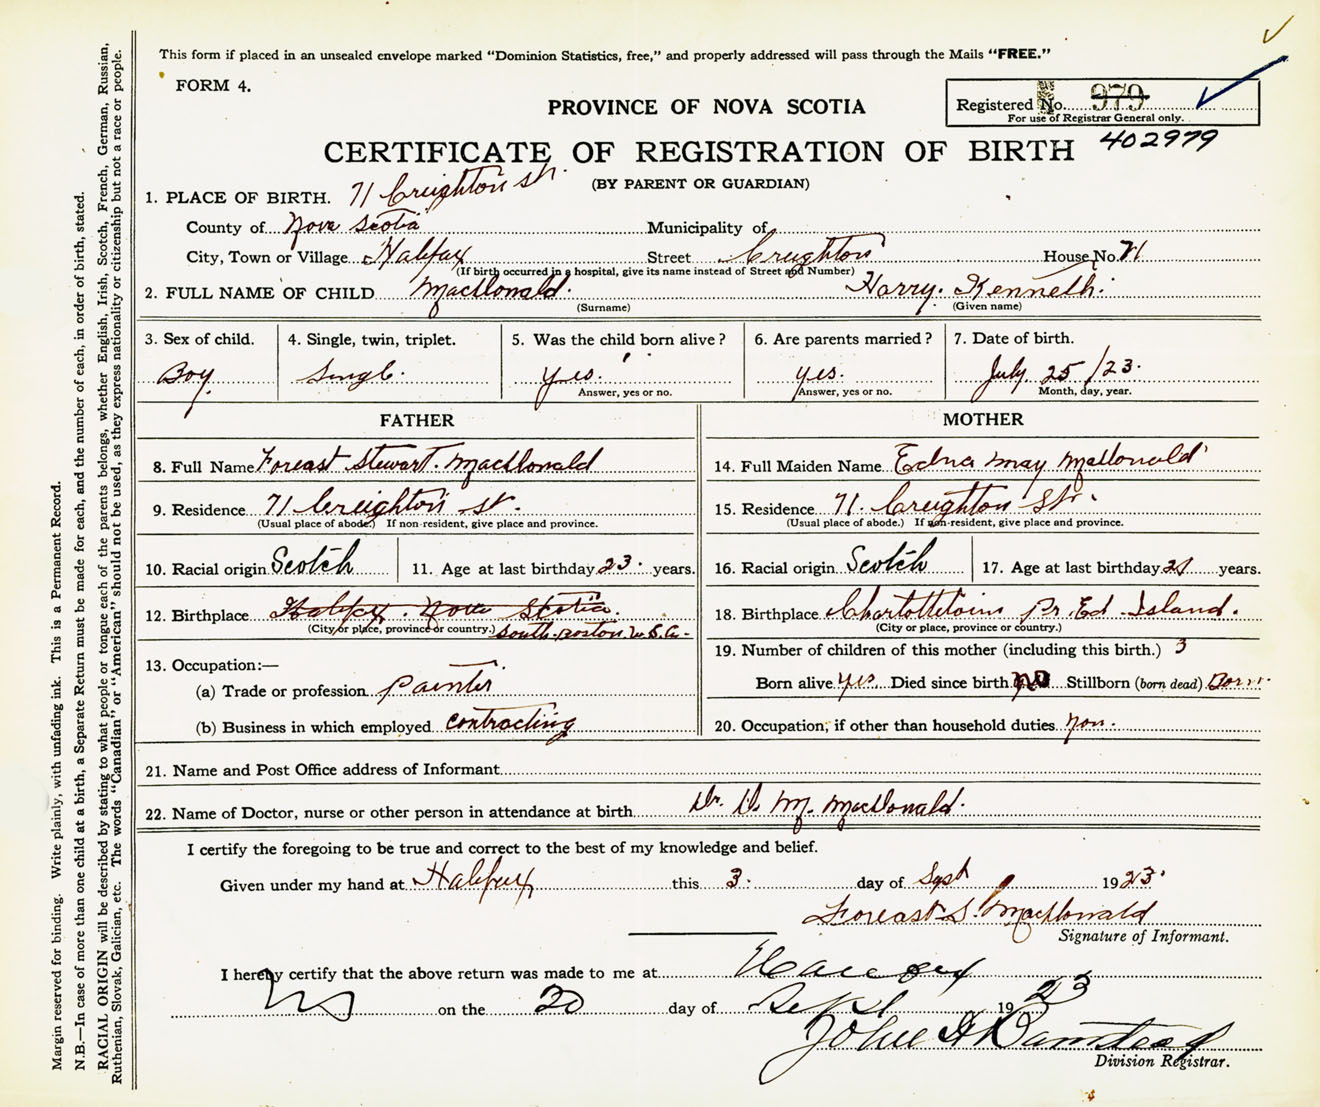 This form if placed in an unsealed envelope marked "Dominion Statistics, free," and properly addressed will pass through the Mails "FREE."
FORM 4.
PROVINCE OF NOVA SCOTIA
Registered No. 979
For use of Registrar General only.
402979
CERTIFICATE OF REGISTRATION OF BIRTH
(BY PARENT OR GUARDIAN)
1. PLACE OF BIRTH. 71 Creighton St.
County of Nova Scotia Municipality of
City, Town or Village Halifax Street Creighton House No. 71
(If birth occurred in a hospital, give its name instead of Street and Number)
2. FULL NAME OF CHILD MacDonald. Harry. Kenneth.
(Surname) (Given name)
3. Sex of child. 4. Single, twin, triplet. 5. Was the child born alive? 6. Are parents married? 7. Date of birth.
Boy Single. yes. yes. July 25/23.
Answer, yes or no. Answer, yes or no. Month, day, year.
FATHER MOTHER
8. Full Name Foreast Stewart. MacDonald 14. Full Maiden Name Edna May MacDonald
9. Residence 71 Creighton St. 15. Residence 71. Creighton St.
(Usual place of abode.) If non-resident, give place and province. (Usual place of abode.) If non-resident, give place and province.
10. Racial origin Scotch 11. Age at last birthday 23. years. 16. Racial origin Scotch 17. Age at last birthday 21 years.
12. Birthplace Halifax. Nova Scotia. 18. Birthplace Charlottetown Pr. Ed. Island.
(City or place, province or country.) South. Boston U.S.A. (City or place, province or country.)
19. Number of children of this mother (including this birth.) 3
13. Occupation:—
(a) Trade or profession Painter Born alive yes Died since birth no Stillborn (born dead)
(b) Business in which employed contracting 20. Occupation, if other than household duties non.
21. Name and Post Office address of Informant
22. Name of Doctor, nurse or other person in attendance at birth Dr. D. M. MacDonald.
I certify the foregoing to be true and correct to the best of my knowledge and belief.
Given under my hand at Halifax this 3. day of Sept 1923.
Foreast S. MacDonald
Signature of Informant.
I hereby certify that the above return was made to me at Halifax
NS on the 20 day of Sept 1923
John A Barnstead
Division Registrar.
Margin reserved for binding. Write plainly, with unfading ink. This is a Permanent Record.
N.B.—In case of more than one child at a birth, a Separate Return must be made for each, and the number of each, in order of birth, stated.
RACIAL ORIGIN will be described by stating to what people or tongue each of the parents belongs, whether English, Irish, Scotch, French, German, Russian,
Ruthenian, Slovak, Galician, etc. The words "Canadian" or "American" should not be used, as they express nationality or citizenship but not a race or people.